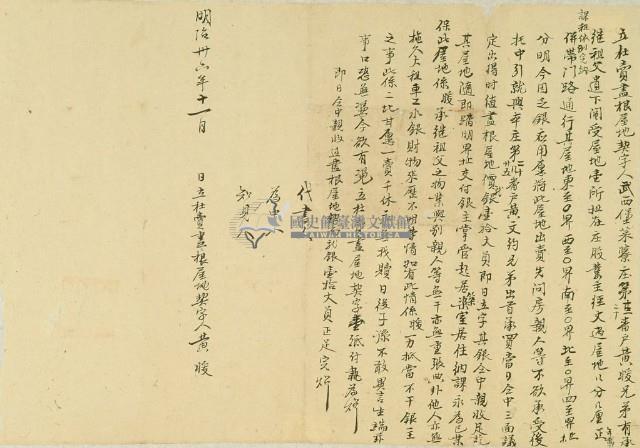 立杜賣盡根屋地契字人武西堡菜寮庄第 番戶黃暖兄弟有承
繼祖父遺下鬮受屋地壹所址在庄股業主經丈過屋地 分厘正
課租依則完納
併帶門路通行其屋地東至〇界西至〇界南至〇界北至〇界四至界址
分明今因乏銀應用願將此屋地出賣先問房親人等不欲承受後
托中引就與本庄第 番戶黃文約兄弟出首承買當日仝中三面議
定出得時值盡根屋地價銀壹拾大員即日立字其銀仝中親收足訖
其屋地隨即踏明界址交付銀主掌管起居 築室居住納課永為己業
保此屋地係暖承繼祖父之物業與別親人等無干亦無重張典 外他人亦無
拖欠大租車工水銀財物來歷不明等情如有此情係暖一力抵當不干銀主
之事此係二比甘愿一賣千休 找贖日後子孫不敢異言生端滋
事口恐無憑今欲有憑立杜賣盡屋地契字壹紙付執為炤
即日仝中親收過盡根屋地 銀壹拾大員正足完炤
代書人
為中
知見人
國史館臺灣文獻館
TAIWAN HISTORICA
明治卅六年十一月 日立杜賣盡根屋地契字人黃暖